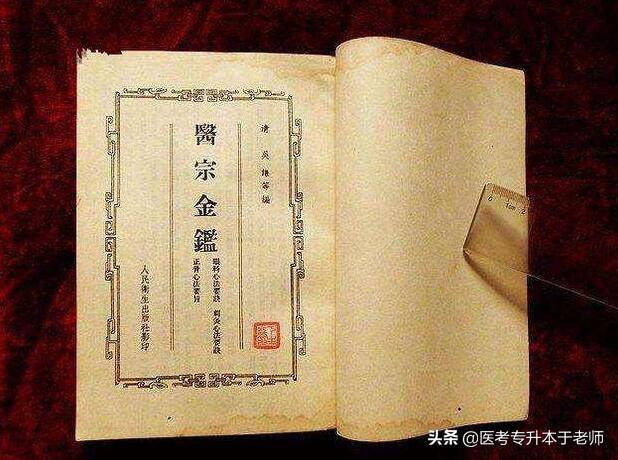 清 吳謙等編
醫宗金鑑
眼科心法要訣 刺灸心法要訣
正骨心法要旨
人民衛生出版社影印
0 1cm 2
头条 @医考专升本于老师